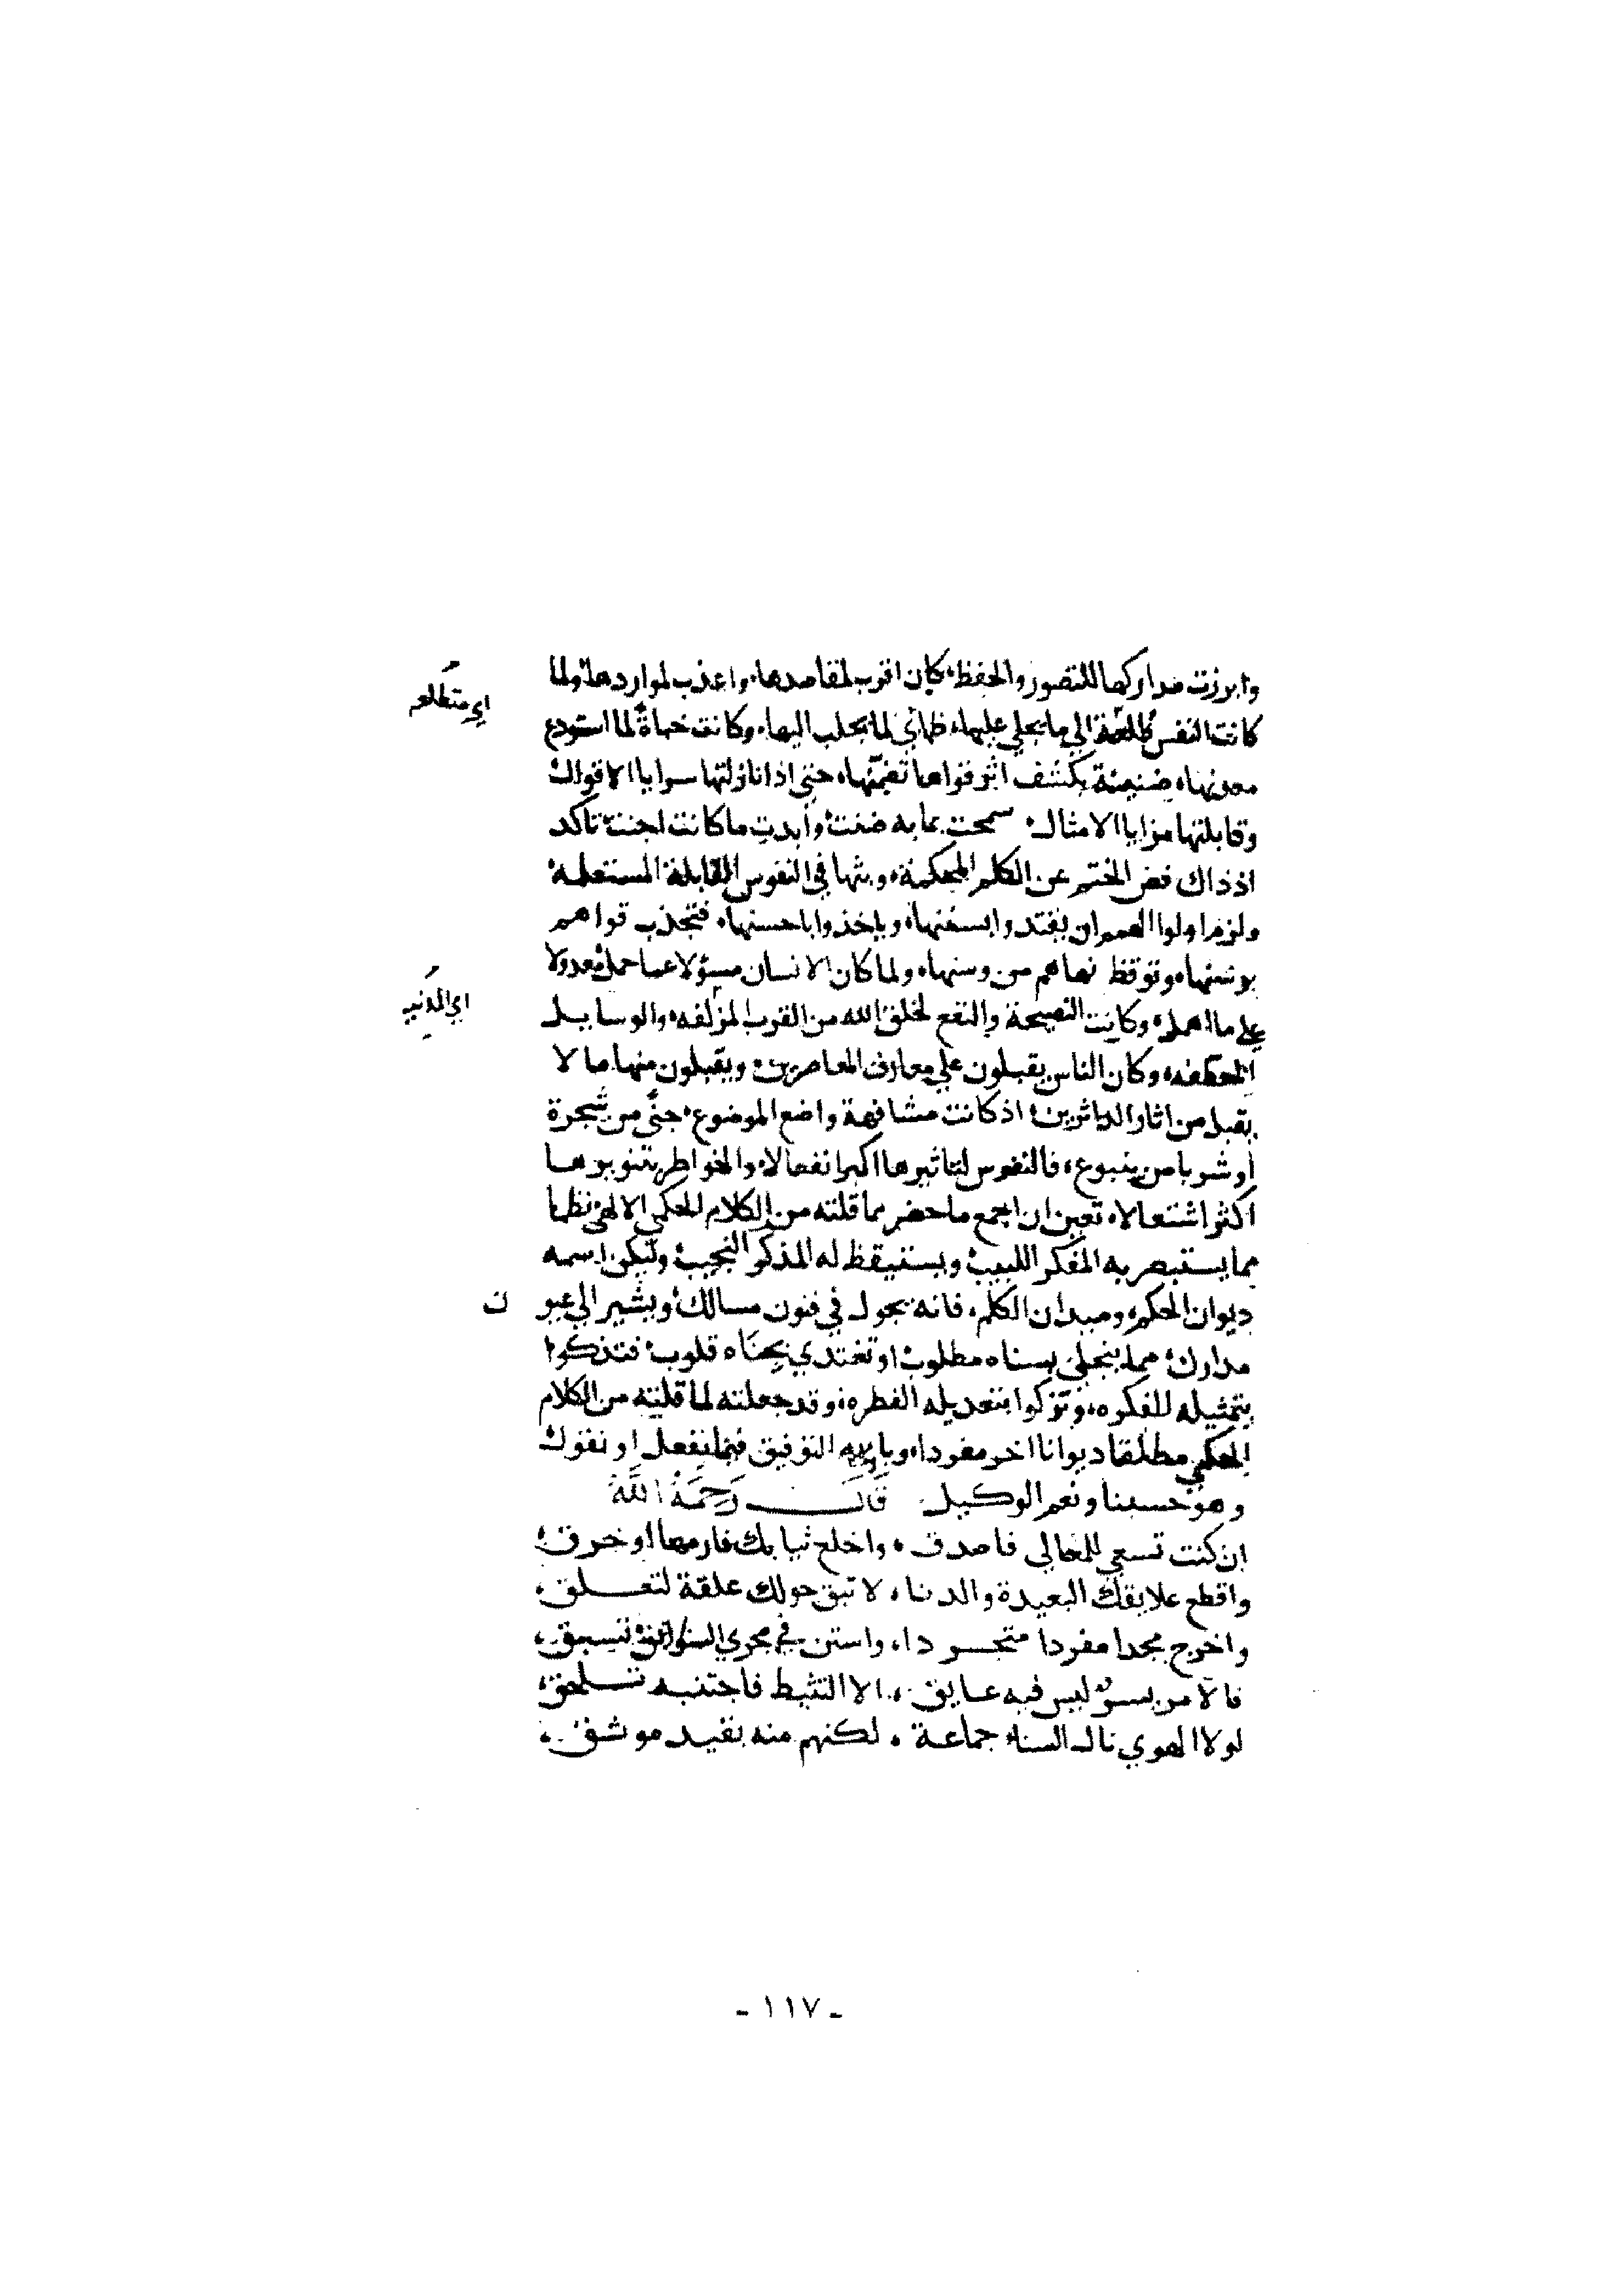 وابرزت مداركها للتصور والحفظ، كان اقرب لمقاصدها، واعذب لمواردها، ولما
اي متطلعه
كانت النفس طلعة الي ما يجلي عليها، ظمأي لما يجلب اليها، وكانت خباة لما استودع
معدنها، ضنينة بكشف اثر قواها تغمتها، حتي اذا نازلتها سرايا الاقوال
وقابلتها مزايا الامثال، سمحت بما به ضنت، وابدت ما كانت اجنت، تاكد
اذ ذاك فض الختم عن الكلم المحكمة، وبثها في النفوس القابلة المستعلمة
ولزم اولوا الهمم ان يقتدوا بسننها، وياخذوا باحسنها، فتجذب قواهم
برسنها، وتوقظ نهاهم من وسنها، ولما كان الانسان مسؤلا عما حمل، معدولا
علي ما اهمل، وكانت النصيحة والنفع لخلق الله من القرب المزلفه، والوسايل
اي المدنيه
المحظفه، وكان الناس يقبلون علي معارف المعاصرين، ويقبلون منها ما لا
يقبل من اثار الداثرين، اذ كانت مشافهة واضع الموضوع، جني من شجرة
او شربا من ينبوع، فالنفوس لتاثيرها اكبر انفعالا، والخواطر بتنويرها
اكثر اشتعالا، تعين ان اجمع ما حضر مما قلته من الكلام الحكمي الالهي نظما
مما يستبصر به المفكر اللبيب، ويستيقظ له المذكر النجيب، وليكن اسمه
ديوان الحكم، وميدان الكلم، فانه يجول في فنون مسالك، ويشير الي عيون
مدارك، مما ينجلي بسناه مطلوب، او تغتدي بجناه قلوب، فتذكوا
بتمثيله للفكره، وتزكوا بتعديله الفطره، وقد جعلته لما قلته من الكلام
الحكمي مطلقا ديوانا اخر مفردا، وبالله التوفيق فيما نفعل او نقول
وهو حسبنا ونعم الوكيل قال رحمه الله
ان كنت تسعي للمعالي فاصدق، واخلع ثيابك فارمها او خرق،
واقطع علايقك البعيدة والدنا، لا تبق حولك علقة لتعلق،
واخرج مجدا مفردا متجردا، واستن في مجري السوابق تسبق،
فالامر يسر ليس فيه عايق، الا التثبط فاجتنبه تسلحق،
لولا الهوي نال السناء جماعة، لكنهم منه بقيد موثق،
- ١١٧ -